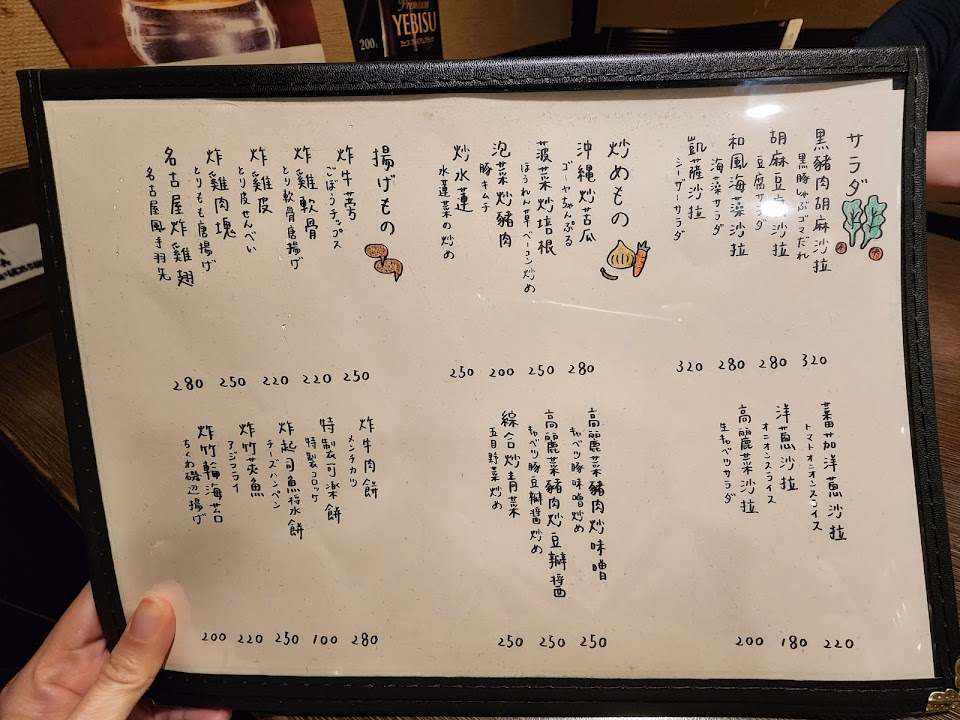 Premium
YEBISU
サラダ
黒豬肉胡麻沙拉
黒豚しゃぶゴマだれ
320
胡麻豆腐沙拉
豆腐サラダ
280
和風海藻沙拉
海藻サラダ
280
凱薩沙拉
シーザーサラダ
320
蕃茄洋蔥沙拉
トマトオニオンスライス
220
洋蔥沙拉
オニオンスライス
180
高麗菜沙拉
生キャベツサラダ
200
炒めもの
沖縄炒苦瓜
ゴーヤちゃんぷる
280
菠菜炒培根
ほうれん草ベーコン炒め
250
泡菜炒豬肉
豚キムチ
200
炒水蓮
水蓮菜の炒め
250
高麗菜豬肉炒味噌
キャベツ豚味噌炒め
250
高麗菜豬肉炒豆瓣醬
キャベツ豚豆瓣醤炒め
250
綜合炒青菜
五目野菜炒め
250
揚げもの
炸牛蒡
ごぼうチップス
250
炸雞軟骨
とり軟骨唐揚げ
220
炸雞皮
とり皮せんべい
220
炸雞肉塊
とりもも唐揚げ
250
名古屋炸雞翅
名古屋風手羽先
280
炸牛肉餅
メンチカツ
280
特製可楽餅
特製コロッケ
100
炸起司魚漿餅
チーズハンペン
250
炸竹莢魚
アジフライ
220
炸竹輪海苔
ちくわ磯辺揚げ
200